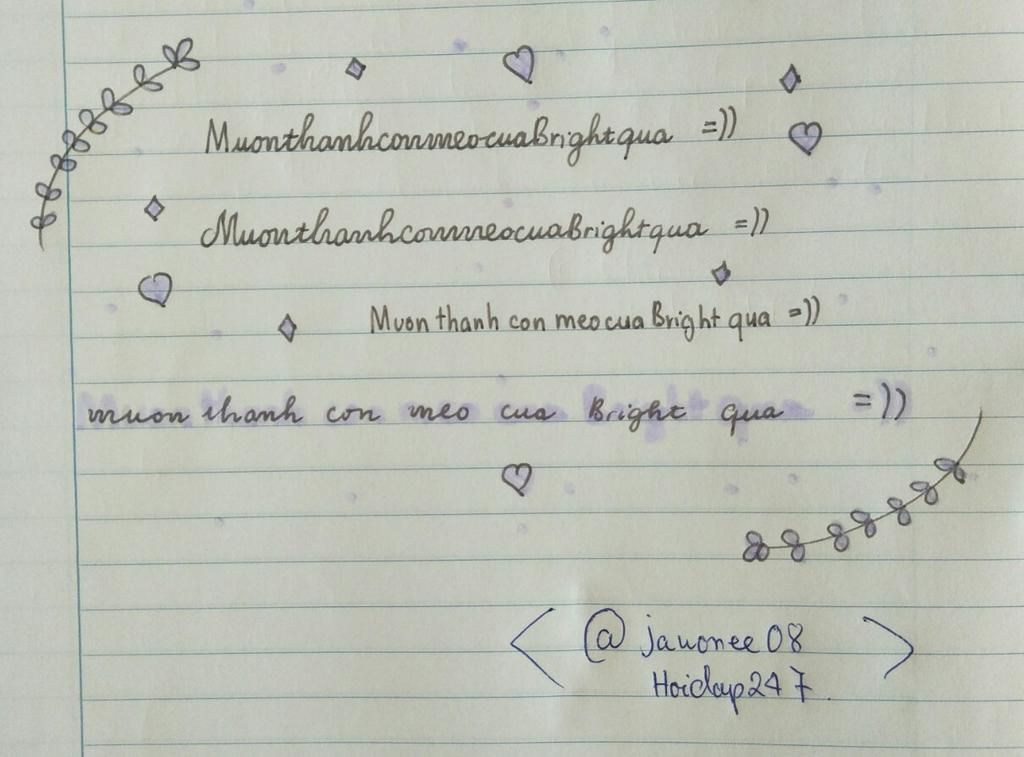 MuonthanhconmeocuaBrightqua =))
MuonthanhconmeocuaBrightqua =))
Muon thanh con meo cua Bright qua =))
muon thanh con meo cua Bright qua =))
< @ jauonee08 >
Hoidap247